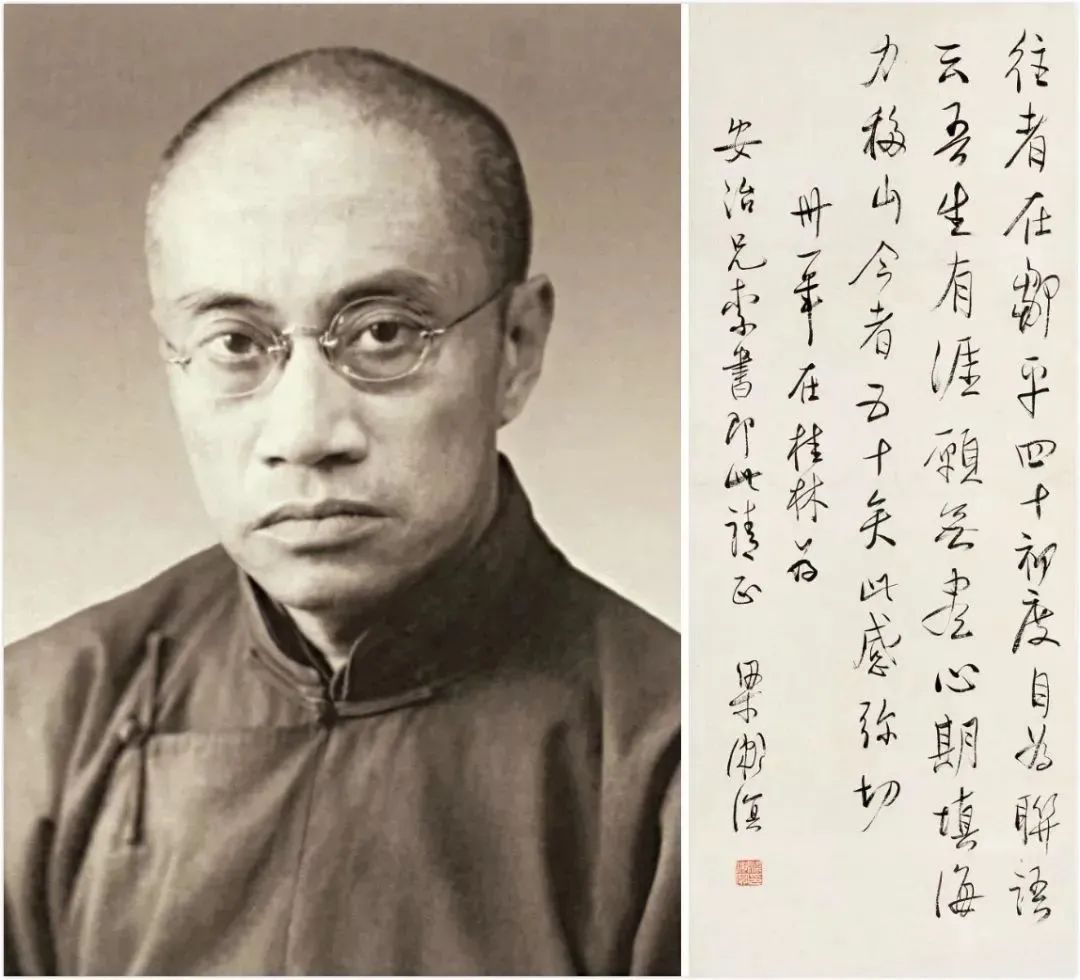 往者在鄒平四十初度自为聯語
云吾生有涯願无盡心期填海
力移山今者五十矣此感弥切
卅一年在桂林为
安治兄索書即此請正
梁漱溟